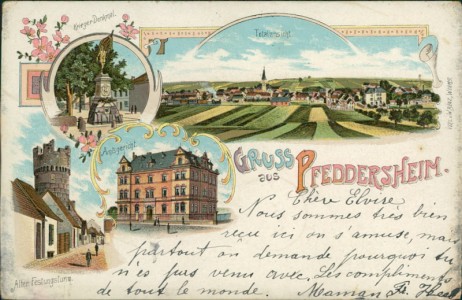 Krieger-Denkmal.
Totalansicht
Amtsgericht.
Gruss
aus
Pfeddersheim.
Alter Festungsturm.
Chère Elvire
Nous sommes très bien
reçu ici on s'amuse, mais
partout on demande pourquoi tu
n'es pas venu avec. Les compliments
de tout le monde. Maman